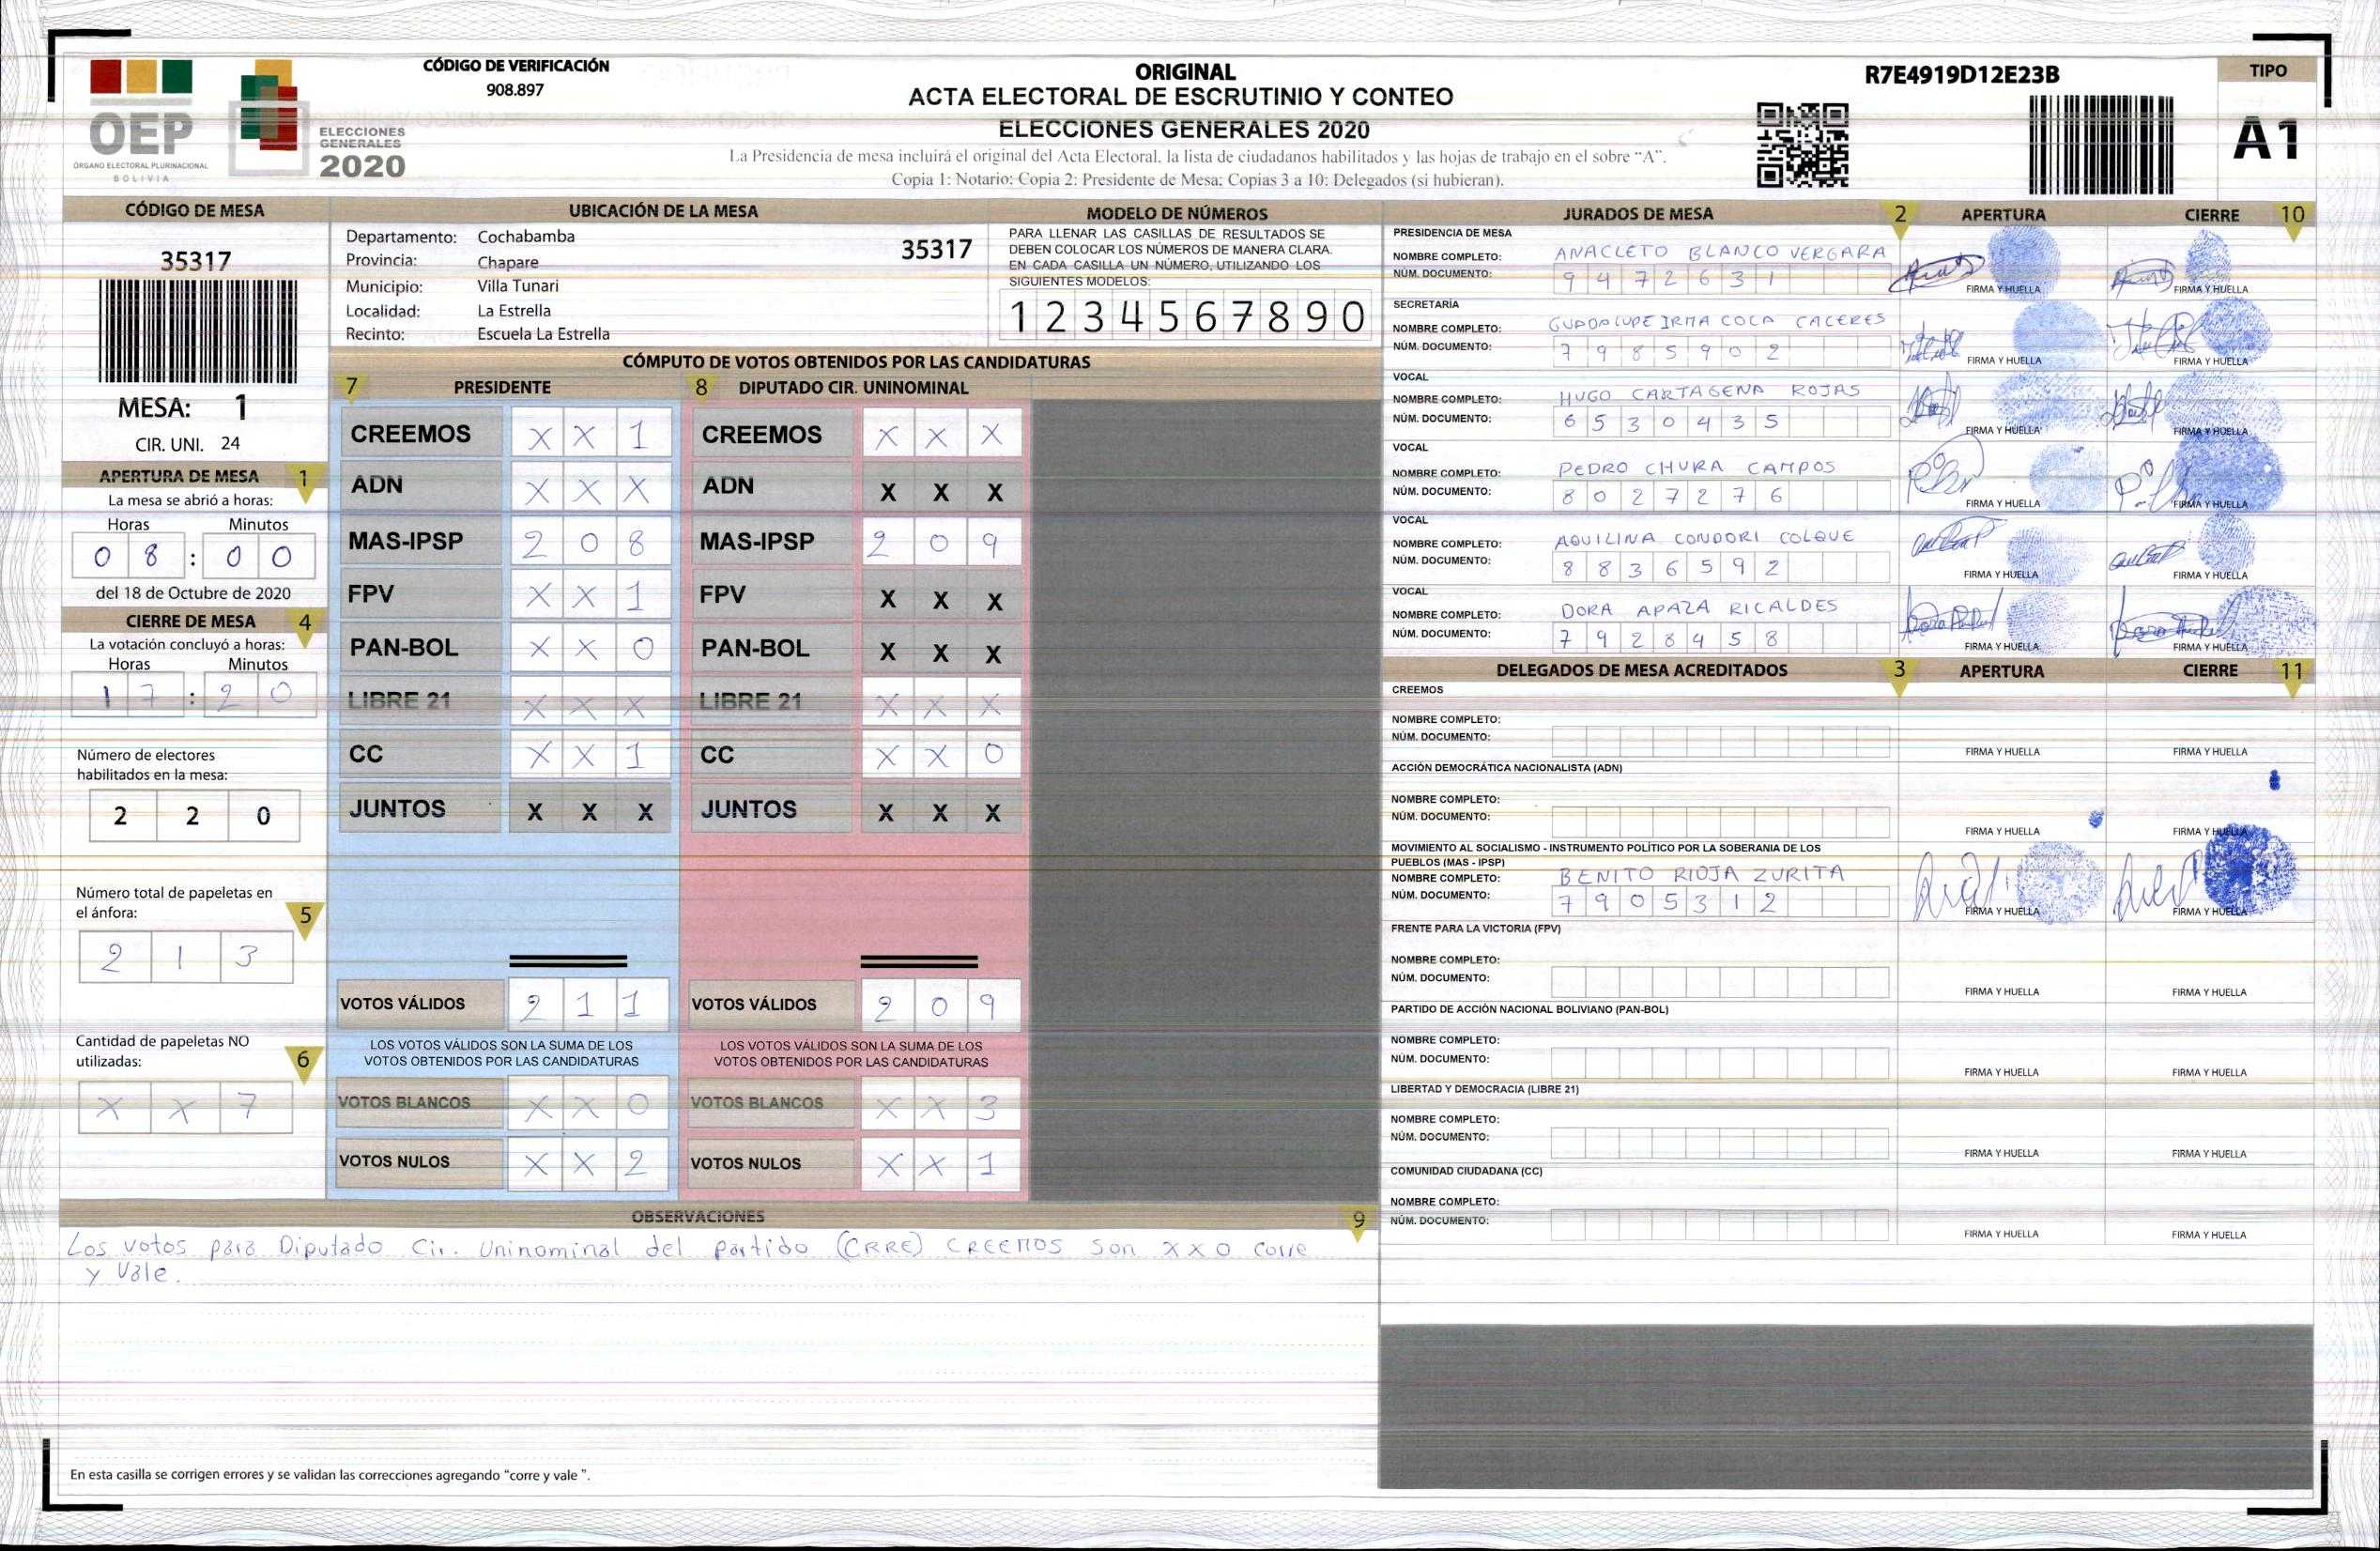 CÓDIGO DE VERIFICACIÓN
908.897
ORIGINAL
ACTA ELECTORAL DE ESCRUTINIO Y CONTEO
ELECCIONES GENERALES 2020
La Presidencia de mesa incluirá el original del Acta Electoral, la lista de ciudadanos habilitados y las hojas de trabajo en el sobre “A”.
Copia 1: Notario; Copia 2: Presidente de Mesa; Copias 3 a 10: Delegados (si hubieran).
R7E4919D12E23B
TIPO
A1
OEP
ÓRGANO ELECTORAL PLURINACIONAL
BOLIVIA
ELECCIONES
GENERALES
2020
CÓDIGO DE MESA
35317
MESA: 1
CIR. UNI. 24
APERTURA DE MESA 1
La mesa se abrió a horas:
Horas Minutos
0 8 : 0 0
del 18 de Octubre de 2020
CIERRE DE MESA 4
La votación concluyó a horas:
Horas Minutos
1 7 : 2 0
Número de electores
habilitados en la mesa:
2 2 0
Número total de papeletas en
el ánfora: 5
2 1 3
Cantidad de papeletas NO
utilizadas: 6
X X 7
UBICACIÓN DE LA MESA
Departamento: Cochabamba
35317
Provincia: Chapare
Municipio: Villa Tunari
Localidad: La Estrella
Recinto: Escuela La Estrella
MODELO DE NÚMEROS
PARA LLENAR LAS CASILLAS DE RESULTADOS SE
DEBEN COLOCAR LOS NÚMEROS DE MANERA CLARA.
EN CADA CASILLA UN NÚMERO, UTILIZANDO LOS
SIGUIENTES MODELOS:
1 2 3 4 5 6 7 8 9 0
CÓMPUTO DE VOTOS OBTENIDOS POR LAS CANDIDATURAS
7 PRESIDENTE 8 DIPUTADO CIR. UNINOMINAL
CREEMOS X X 1 CREEMOS X X X
ADN X X X ADN X X X
MAS-IPSP 2 0 8 MAS-IPSP 2 0 9
FPV X X 1 FPV X X X
PAN-BOL X X 0 PAN-BOL X X X
LIBRE 21 X X X LIBRE 21 X X X
CC X X 1 CC X X 0
JUNTOS X X X JUNTOS X X X
VOTOS VÁLIDOS 2 1 1 VOTOS VÁLIDOS 2 0 9
LOS VOTOS VÁLIDOS SON LA SUMA DE LOS LOS VOTOS VÁLIDOS SON LA SUMA DE LOS
VOTOS OBTENIDOS POR LAS CANDIDATURAS VOTOS OBTENIDOS POR LAS CANDIDATURAS
VOTOS BLANCOS X X 0 VOTOS BLANCOS X X 3
VOTOS NULOS X X 2 VOTOS NULOS X X 1
OBSERVACIONES 9
Los votos para Diputado Cir. Uninominal del partido (CRRE) CREEMOS son X X 0 Corre
y Vale.
En esta casilla se corrigen errores y se validan las correcciones agregando “corre y vale ”.
JURADOS DE MESA 2 APERTURA CIERRE 10
PRESIDENCIA DE MESA
NOMBRE COMPLETO: ANACLETO BLANCO VERGARA
NÚM. DOCUMENTO: 9 4 7 2 6 3 1
FIRMA Y HUELLA FIRMA Y HUELLA
SECRETARÍA
NOMBRE COMPLETO: GUADALUPE IRMA COCA CACERES
NÚM. DOCUMENTO: 7 9 8 5 9 0 2
FIRMA Y HUELLA FIRMA Y HUELLA
VOCAL
NOMBRE COMPLETO: HUGO CARTAGENA ROJAS
NÚM. DOCUMENTO: 6 5 3 0 4 3 5
FIRMA Y HUELLA FIRMA Y HUELLA
VOCAL
NOMBRE COMPLETO: PEDRO CHURA CAMPOS
NÚM. DOCUMENTO: 8 0 2 7 2 7 6
FIRMA Y HUELLA FIRMA Y HUELLA
VOCAL
NOMBRE COMPLETO: AQUILINA CONDORI COLQUE
NÚM. DOCUMENTO: 8 8 3 6 5 9 2
FIRMA Y HUELLA FIRMA Y HUELLA
VOCAL
NOMBRE COMPLETO: DORA APAZA RICALDES
NÚM. DOCUMENTO: 7 9 2 8 4 5 8
FIRMA Y HUELLA FIRMA Y HUELLA
DELEGADOS DE MESA ACREDITADOS 3 APERTURA CIERRE 11
CREEMOS
NOMBRE COMPLETO:
NÚM. DOCUMENTO:
FIRMA Y HUELLA FIRMA Y HUELLA
ACCIÓN DEMOCRÁTICA NACIONALISTA (ADN)
NOMBRE COMPLETO:
NÚM. DOCUMENTO:
FIRMA Y HUELLA FIRMA Y HUELLA
MOVIMIENTO AL SOCIALISMO - INSTRUMENTO POLÍTICO POR LA SOBERANIA DE LOS
PUEBLOS (MAS - IPSP)
NOMBRE COMPLETO: BENITO RIOJA ZURITA
NÚM. DOCUMENTO: 7 9 0 5 3 1 2
FIRMA Y HUELLA FIRMA Y HUELLA
FRENTE PARA LA VICTORIA (FPV)
NOMBRE COMPLETO:
NÚM. DOCUMENTO:
FIRMA Y HUELLA FIRMA Y HUELLA
PARTIDO DE ACCIÓN NACIONAL BOLIVIANO (PAN-BOL)
NOMBRE COMPLETO:
NÚM. DOCUMENTO:
FIRMA Y HUELLA FIRMA Y HUELLA
LIBERTAD Y DEMOCRACIA (LIBRE 21)
NOMBRE COMPLETO:
NÚM. DOCUMENTO:
FIRMA Y HUELLA FIRMA Y HUELLA
COMUNIDAD CIUDADANA (CC)
NOMBRE COMPLETO:
NÚM. DOCUMENTO:
FIRMA Y HUELLA FIRMA Y HUELLA